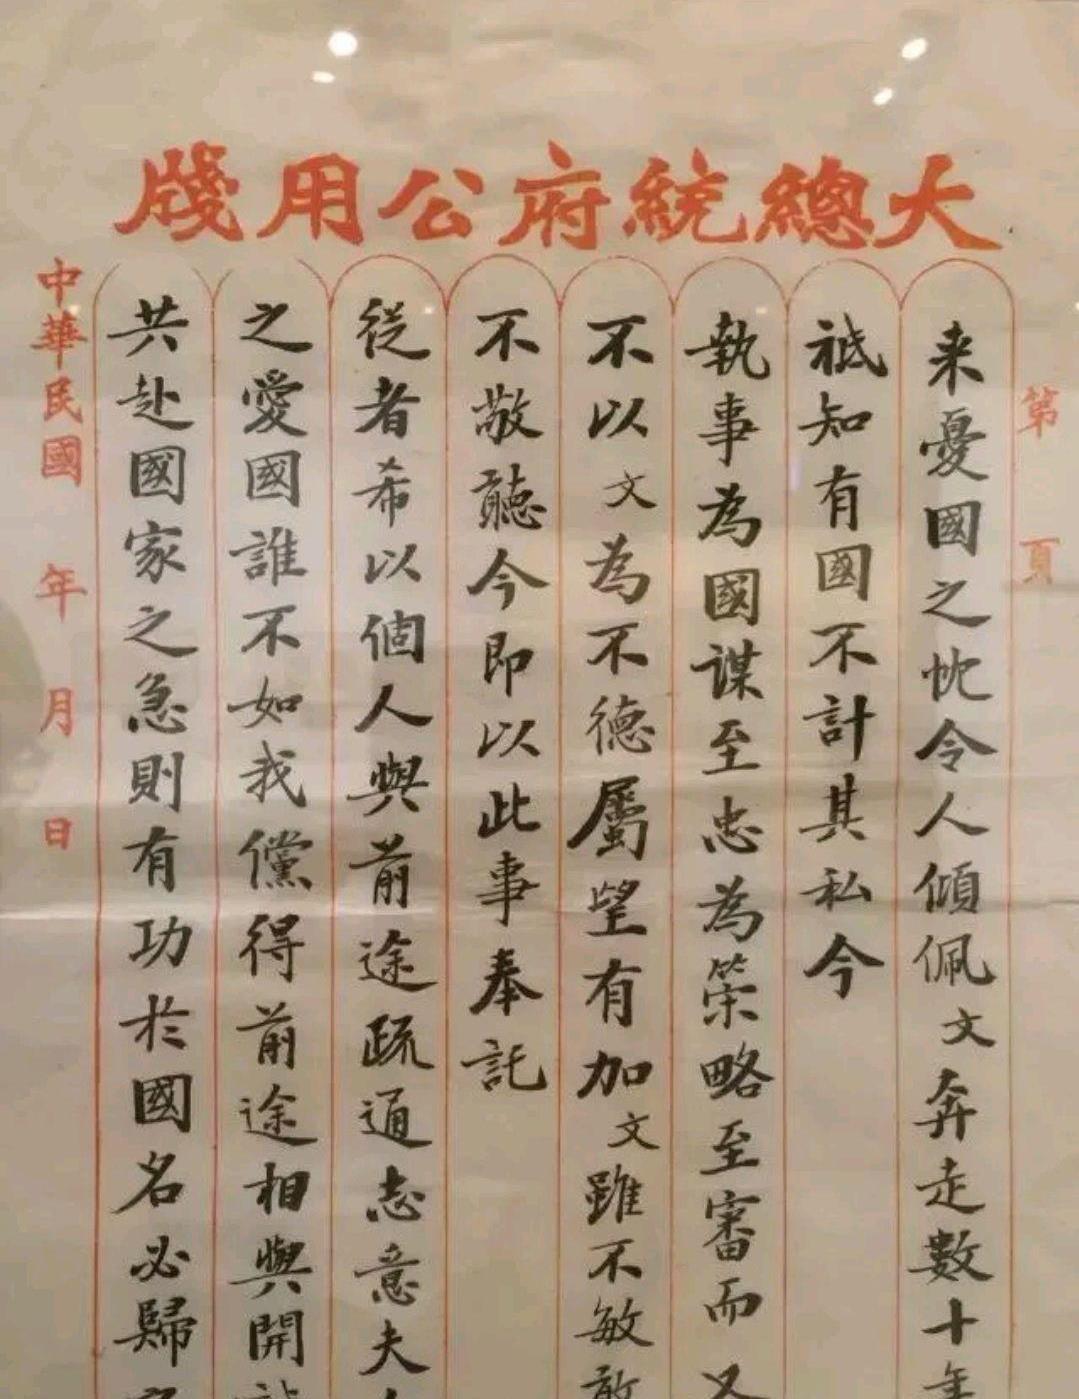 大總統府公用牋
第 頁
来憂國之忱令人傾佩文奔走數十年
祗知有國不計其私今
執事為國謀至忠為策略至審而又
不以文為不德屬望有加文雖不敏敢
不敬聽今即以此事奉託
從者希以個人與前途疏通志意夫人
之愛國誰不如我儻得前途相與開誠
共赴國家之急則有功於國名必歸
中華民國 年 月 日